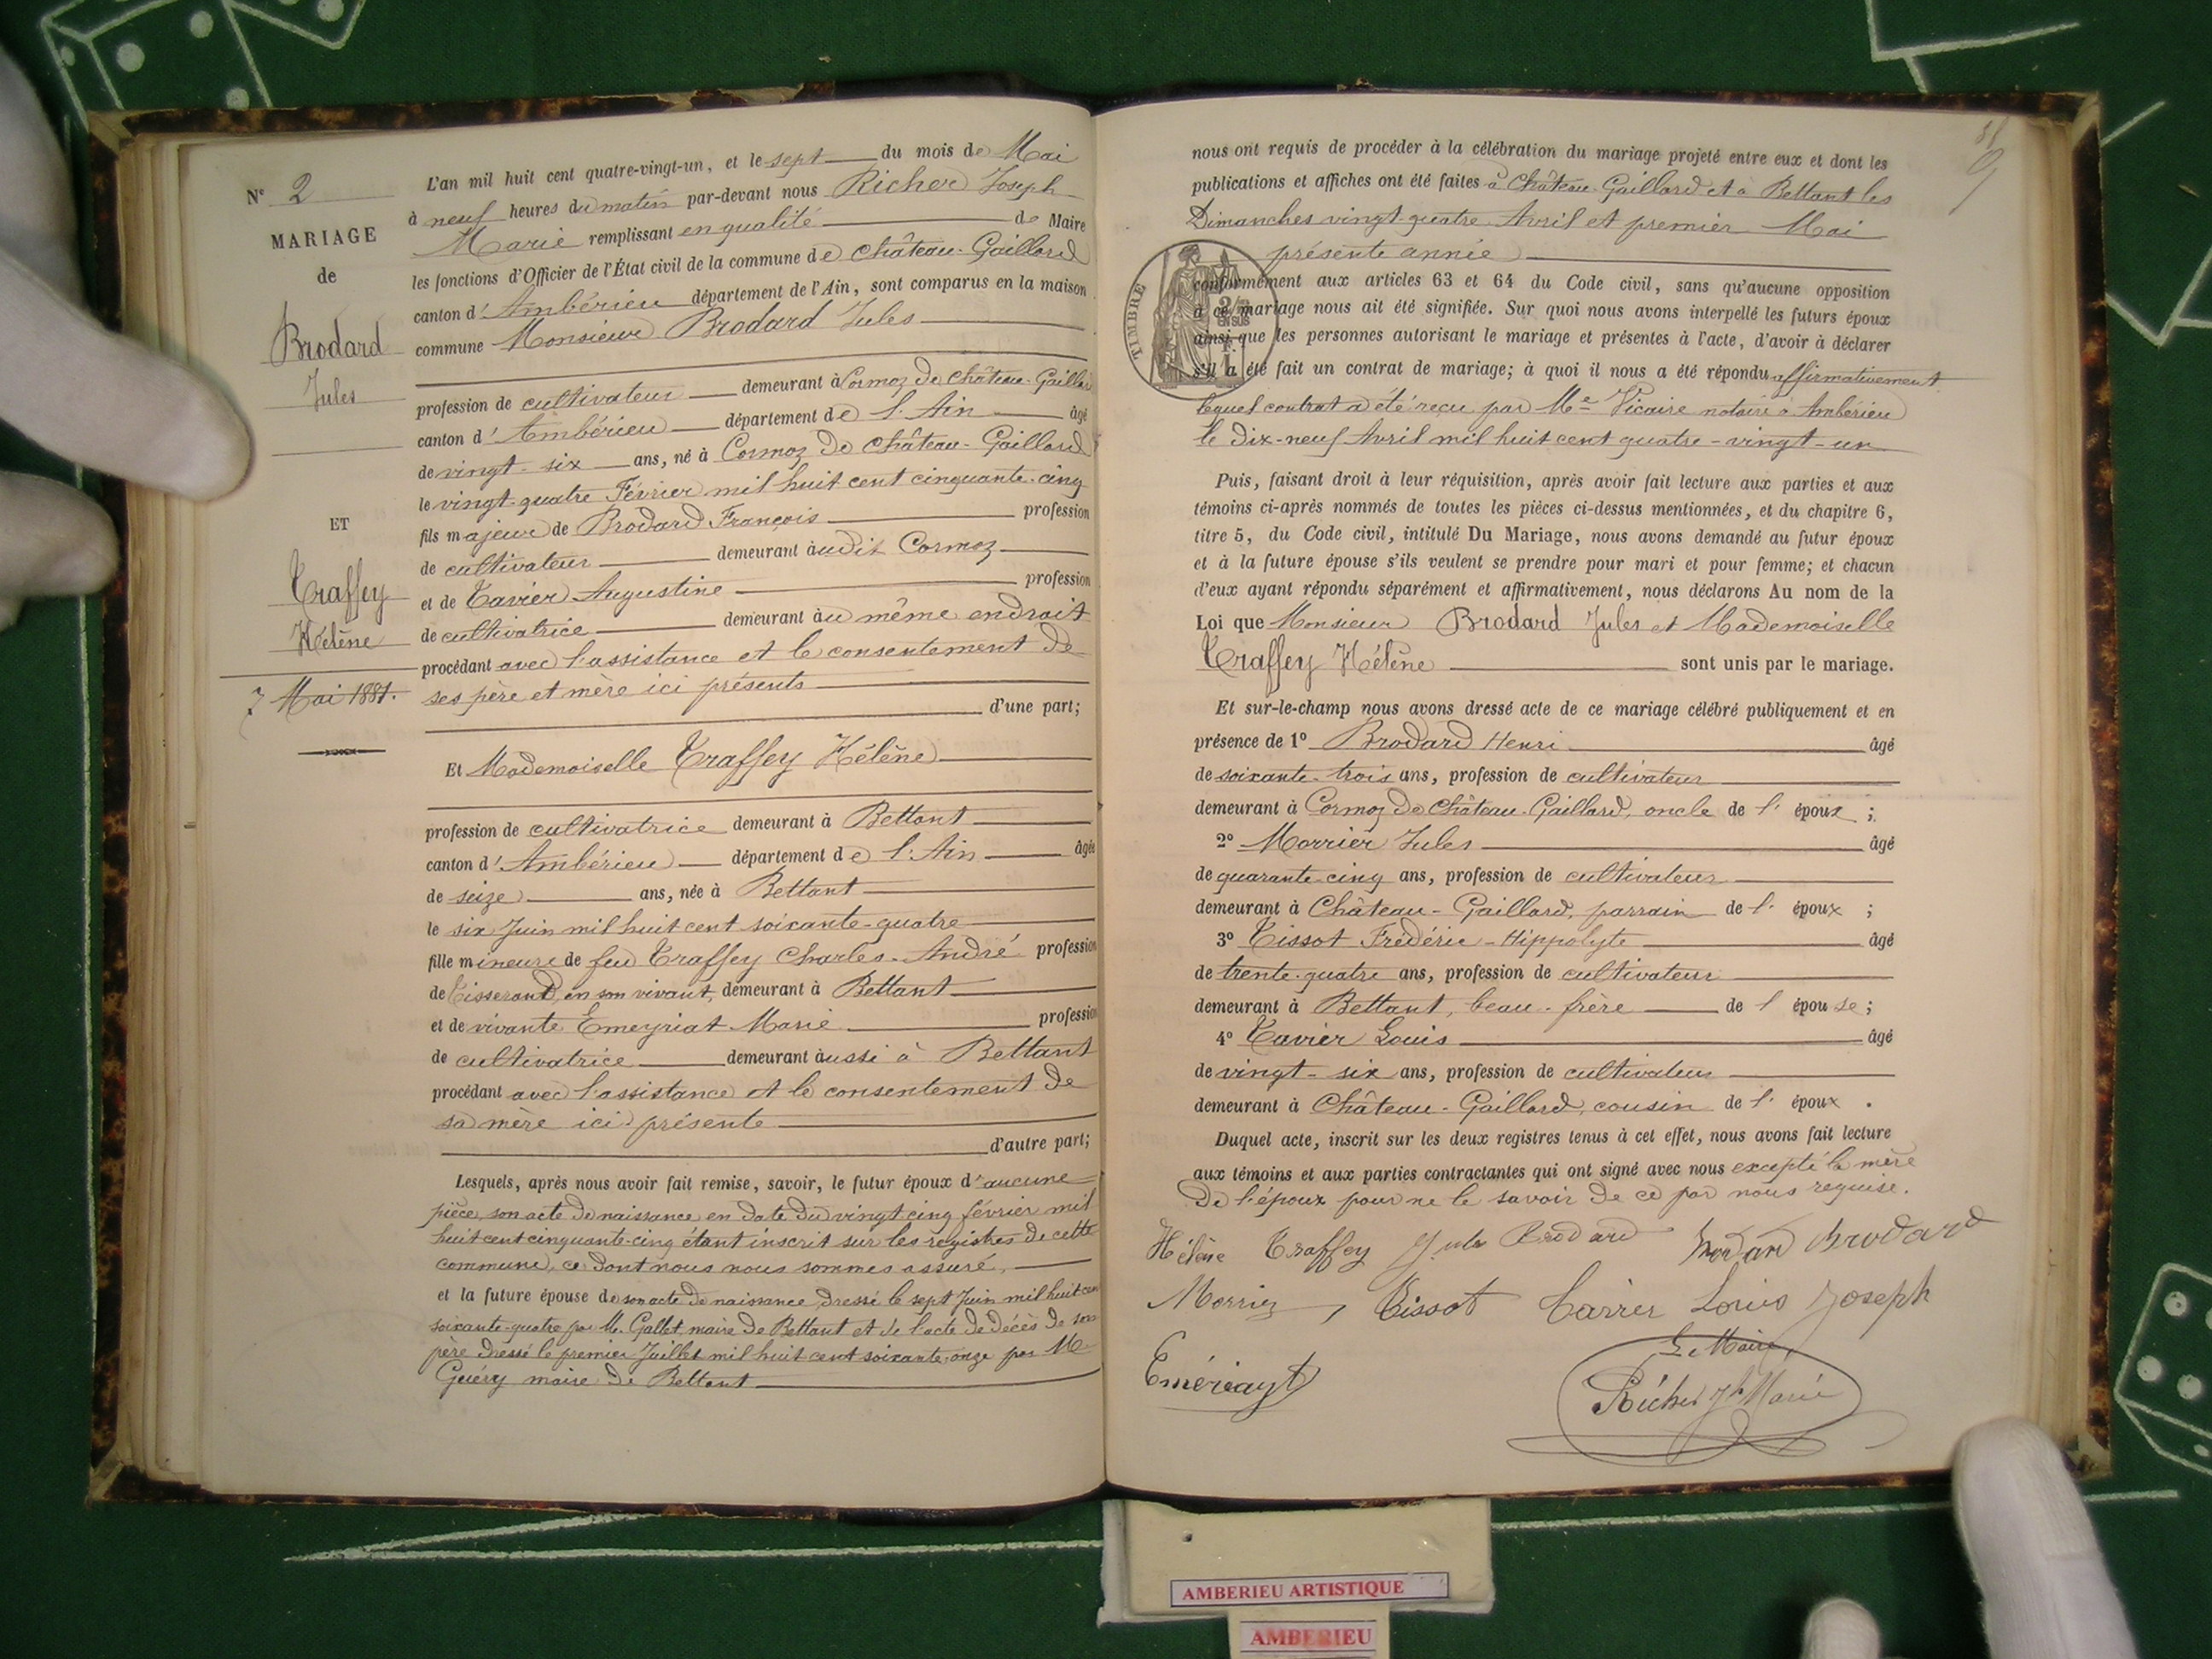 N° 2
MARIAGE
de
Brodard
Jules
ET
Traffey
Hélène
7 Mai 1881.
L'an mil huit cent quatre-vingt-un, et le sept du mois de Mai
à neuf heures du matin par-devant nous Richer Joseph
Marie remplissant en qualité de Maire
les fonctions d'Officier de l'État civil de la commune de Château-Gaillard
canton d'Ambérieu département de l'Ain, sont comparus en la maison
commune Monsieur Brodard Jules
profession de cultivateur demeurant à Cormoz de Château-Gaillard
canton d'Ambérieu département de l'Ain âgé
de vingt-six ans, né à Cormoz de Château-Gaillard
le vingt-quatre Février mil huit cent cinquante-cinq
fils majeur de Brodard François profession
de cultivateur demeurant audit Cormoz
et de Tavier Augustine profession
de cultivatrice demeurant au même endroit
procédant avec l'assistance et le consentement de
ses père et mère ici présents
d'une part;
Et Mademoiselle Traffey Hélène
profession de cultivatrice demeurant à Bettant
canton d'Ambérieu département de l'Ain âgée
de seize ans, née à Bettant
le six Juin mil huit cent soixante-quatre
fille mineure de feu Traffey Charles-André profession
de Tisserand, en son vivant, demeurant à Bettant
et de vivante Emeyriat Marie profession
de cultivatrice demeurant aussi à Bettant
procédant avec l'assistance et le consentement de
sa mère ici présente
d'autre part;
Lesquels, après nous avoir fait remise, savoir, le futur époux d'aucune
pièce, son acte de naissance en date du vingt cinq février mil
huit cent cinquante-cinq étant inscrit sur les registres de cette
commune, ce dont nous nous sommes assuré,
et la future épouse de son acte de naissance dressé le sept Juin mil huit cent
soixante-quatre par M. Gallet maire de Bettant et de l'acte de décès de son
père dressé le premier Juillet mil huit cent soixante-onze par M.
Guéry maire de Bettant
nous ont requis de procéder à la célébration du mariage projeté entre eux et dont les
publications et affiches ont été faites à Château-Gaillard et à Bettant les
Dimanches vingt-quatre Avril et premier Mai
présente année
TIMBRE
2/10 EN SUS
conformément aux articles 63 et 64 du Code civil, sans qu'aucune opposition
à ce mariage nous ait été signifiée. Sur quoi nous avons interpellé les futurs époux
ainsi que les personnes autorisant le mariage et présentes à l'acte, d'avoir à déclarer
s'il a été fait un contrat de mariage; à quoi il nous a été répondu affirmativement
lequel contrat a été reçu par Me Vicaire notaire à Ambérieu
le dix-neuf Avril mil huit cent quatre-vingt-un
Puis, faisant droit à leur réquisition, après avoir fait lecture aux parties et aux
témoins ci-après nommés de toutes les pièces ci-dessus mentionnées, et du chapitre 6,
titre 5, du Code civil, intitulé Du Mariage, nous avons demandé au futur époux
et à la future épouse s'ils veulent se prendre pour mari et pour femme; et chacun
d'eux ayant répondu séparément et affirmativement, nous déclarons Au nom de la
Loi que Monsieur Brodard Jules et Mademoiselle
Traffey Hélène sont unis par le mariage.
Et sur-le-champ nous avons dressé acte de ce mariage célébré publiquement et en
présence de 1° Brodard Henri âgé
de soixante-trois ans, profession de cultivateur
demeurant à Cormoz de Château-Gaillard, oncle de l'époux ;
2° Morrier Jules âgé
de quarante-cinq ans, profession de cultivateur
demeurant à Château-Gaillard, parrain de l'époux ;
3° Tissot Frédéric-Hippolyte âgé
de trente-quatre ans, profession de cultivateur
demeurant à Bettant, beau-frère de l'épouse ;
4° Tavier Louis âgé
de vingt-six ans, profession de cultivateur
demeurant à Château-Gaillard, cousin de l'époux .
Duquel acte, inscrit sur les deux registres tenus à cet effet, nous avons fait lecture
aux témoins et aux parties contractantes qui ont signé avec nous excepté la mère
de l'époux pour ne le savoir de ce par nous requise.
Hélène Traffey Jules Brodard Brodard Brodard
Morrier Tissot Tavier Louis Joseph
Emériayt
Le Maire,
Richer Jh Marie
AMBERIEU ARTISTIQUE
AMBERIEU